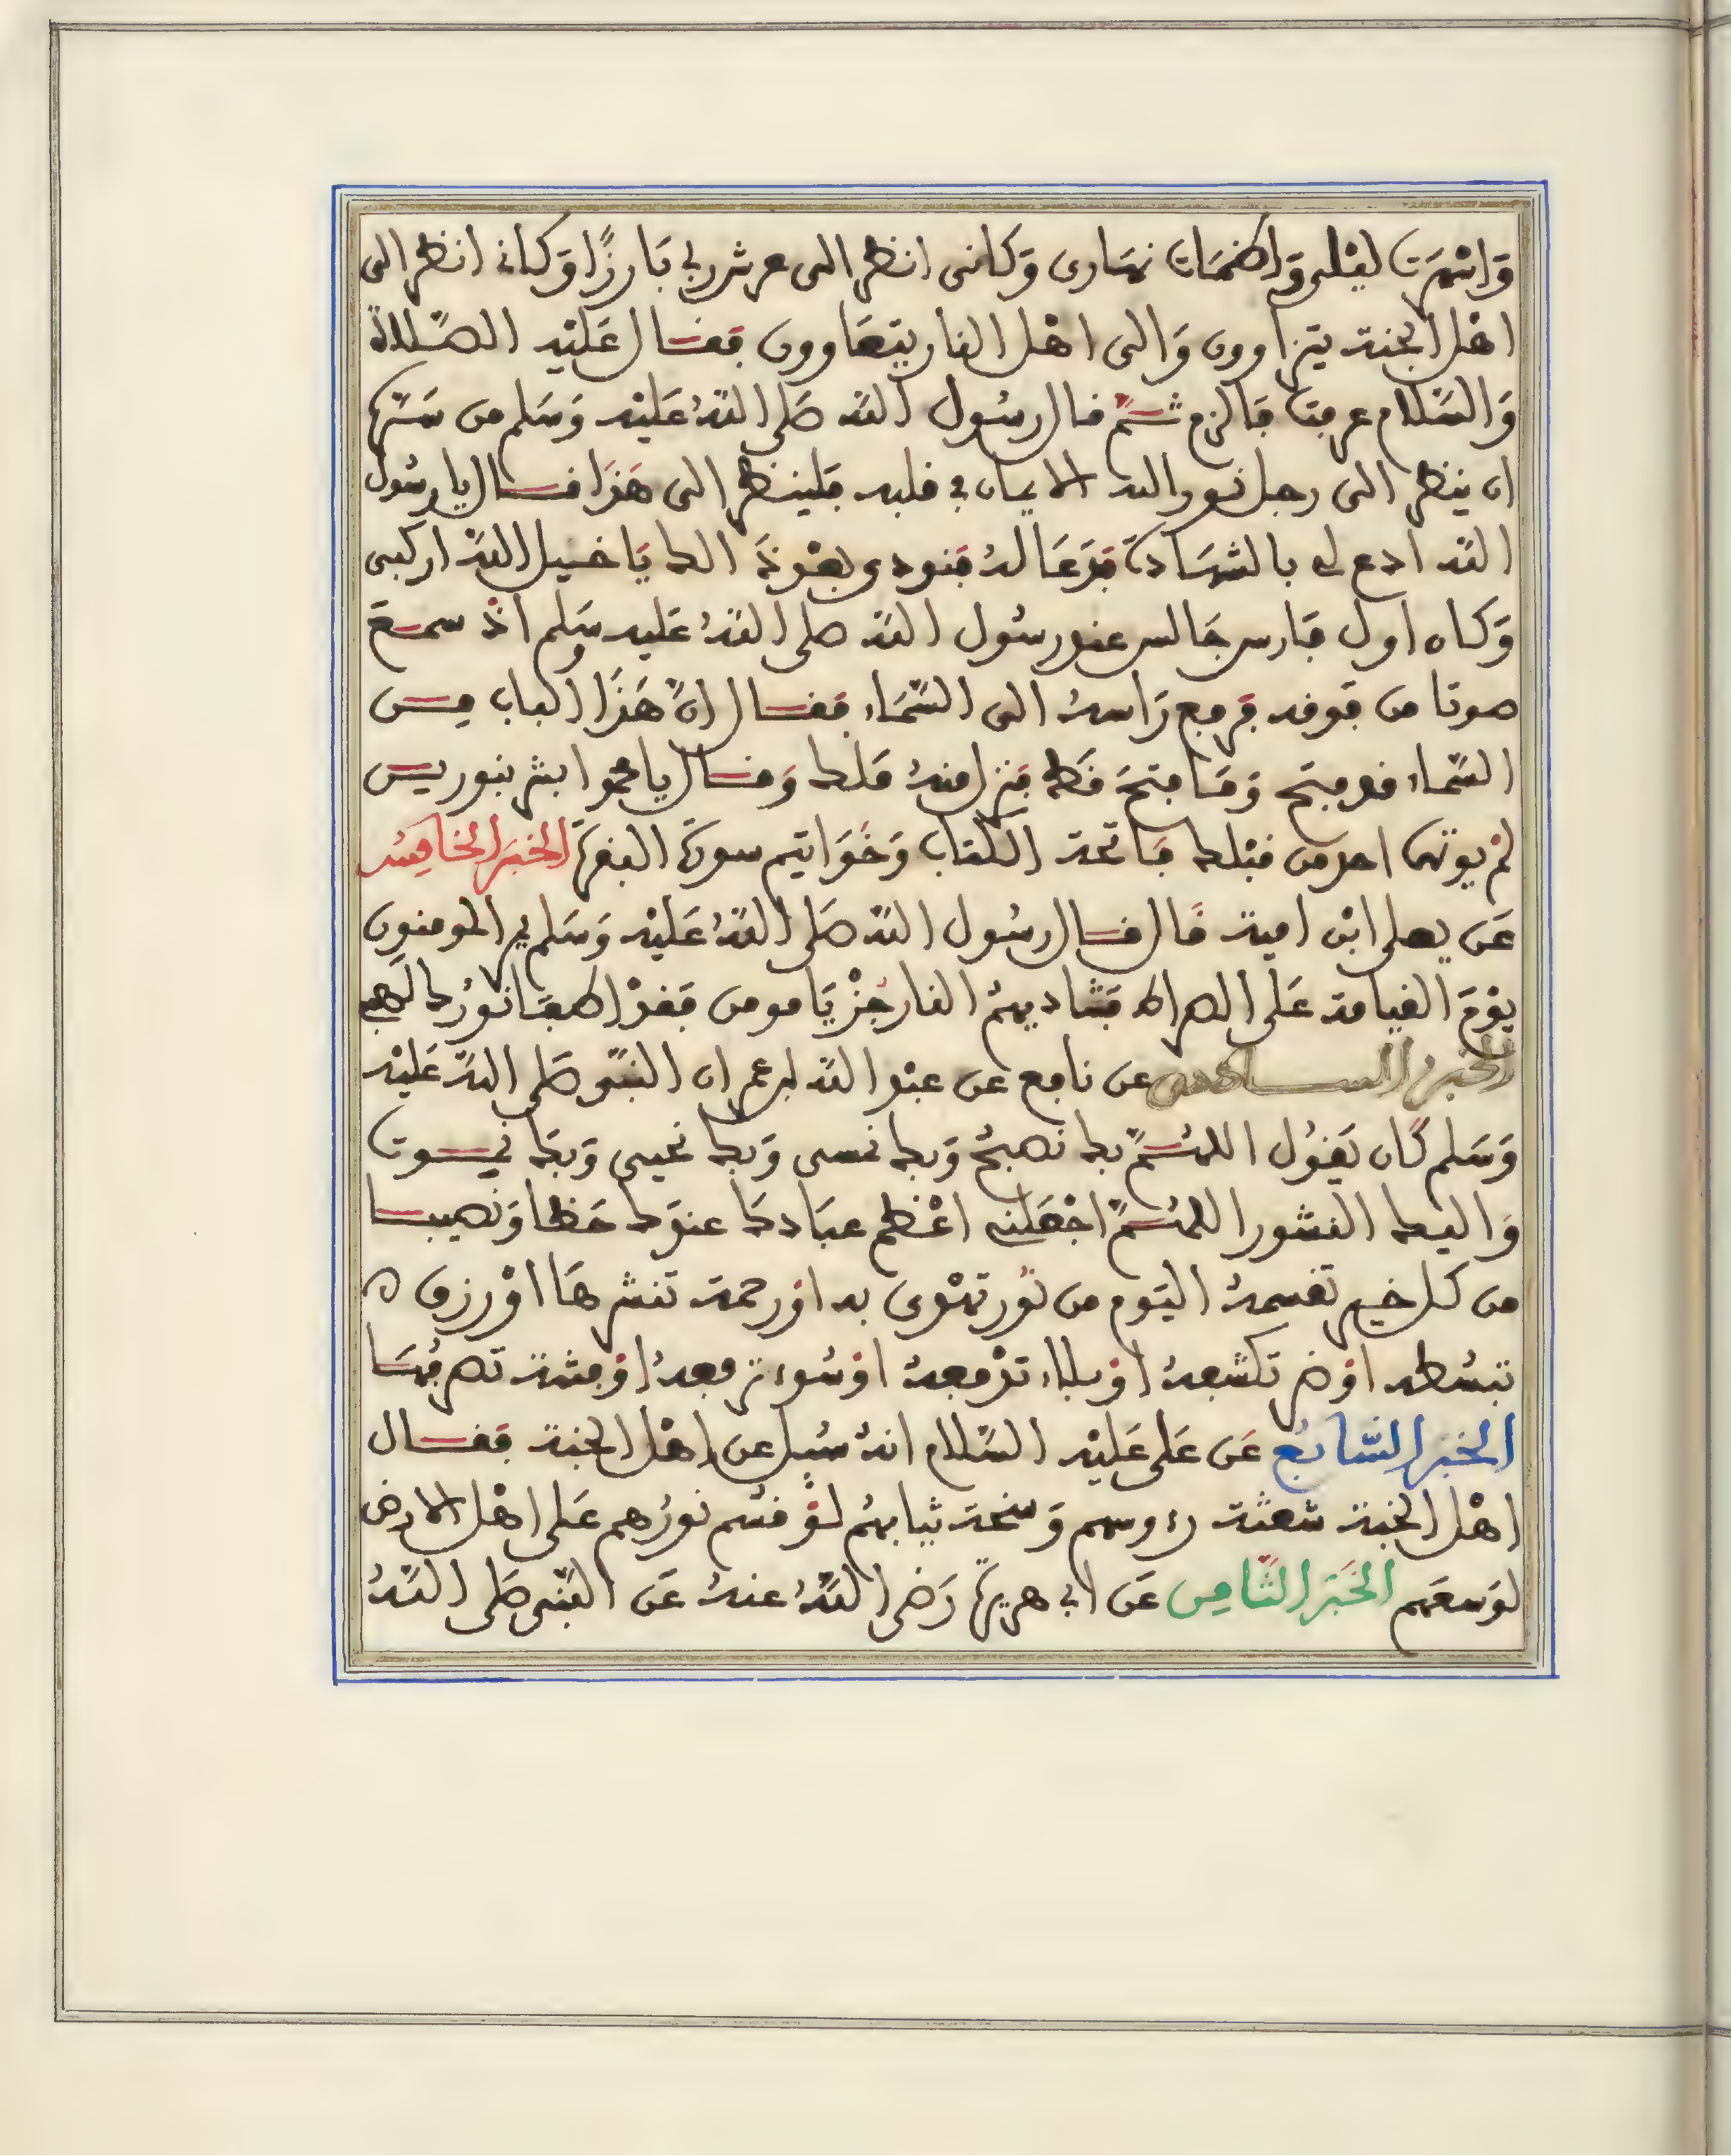 وَاسْهَرت ليْلي وَاظمَات نهَارى وَكانى انظر الى عرش ربي بَارزًا وَكاني انظر الى
اهْل الجنة يتزاورون وَالى اهْل النار يتعَاوون فقال عَليْه الصَّلاة
وَالسَّلام عرفتَ فَالزم ثمَّ قال رسُول اللَّه صَلى اللَّهُ عَليْه وَسَلم من سَرَّه
ان ينظر الى رجل نور الله الايمان في قلبه فلينظر الى هَذَا فقال يا رسُول
اللَّه ادع لي بالشهَادة فدَعَا لهُ فنودى بعْد ذَلك يَا خيل اللَّه اركبى
وَكان اول فارس جَالس عند رسُول اللَّه صلى اللَّهُ عَليه وسَلم اذْ سمع
صوتا من فوقه فرفع رَاسهُ الى السَّمَاء فقال انَّ هَذَا الباب من
السَّماء قد فتح وَمَا فتحَ قَط فنزل منهُ مَلك وَقال يا محمد ابشر بنورين
لمْ يوتهما احد من قبْلك فاتحة الكتاب وَخَوَاتيم سورة البقرة الخبَر الخامِس
عَن يعلى ابْن امية قَال قال رسُول اللَّه صَلى اللَّهُ عَليْه وَسَلم يمر المومنون
يوْمَ القيامة عَلى الصراط فتناديهمُ النار جُزْ يَا مومن فقدْ اطفَا نورُك لهبى
الخبر السادس عن نافع عن عبْد اللَّه ابن عمر ان النبَّي صَلى اللَّهُ عَليْه
وَسَلم كَان يَقُول اللهُمَّ بك نصبحُ وَبك نمسى وَبك نحيى وَبكَ نموت
وَاليك النشور اللهُمَّ اجْعَلني اعْظم عبَادك عندَك حَظا وَنصيبا
من كل خير تقسمهُ اليَوم من نُور تهْدى به اوْ رحمة تنشرهَا اوْ رزق
تبسُطه اوْ ضر تكشفهُ اوْ بلاء ترْفعهُ اوْ سُوء ترفعهُ اوْ فتنة تصرفُهَا
الخبَر السَّابع عَن عَلى عَليْه السَّلام انهُ سُيل عن اهْل الجنة فقال
اهْل الجنة شعثة رءوسهم وَسخة ثيابهُم لوْ قسم نورُهم عَلى اهْل الارض
لوَسعَهم الخَبَر الثَّامِن عَن ابي هريرة رَضى اللَّهُ عنهُ عَن النَّبى صَلى اللَّهُ